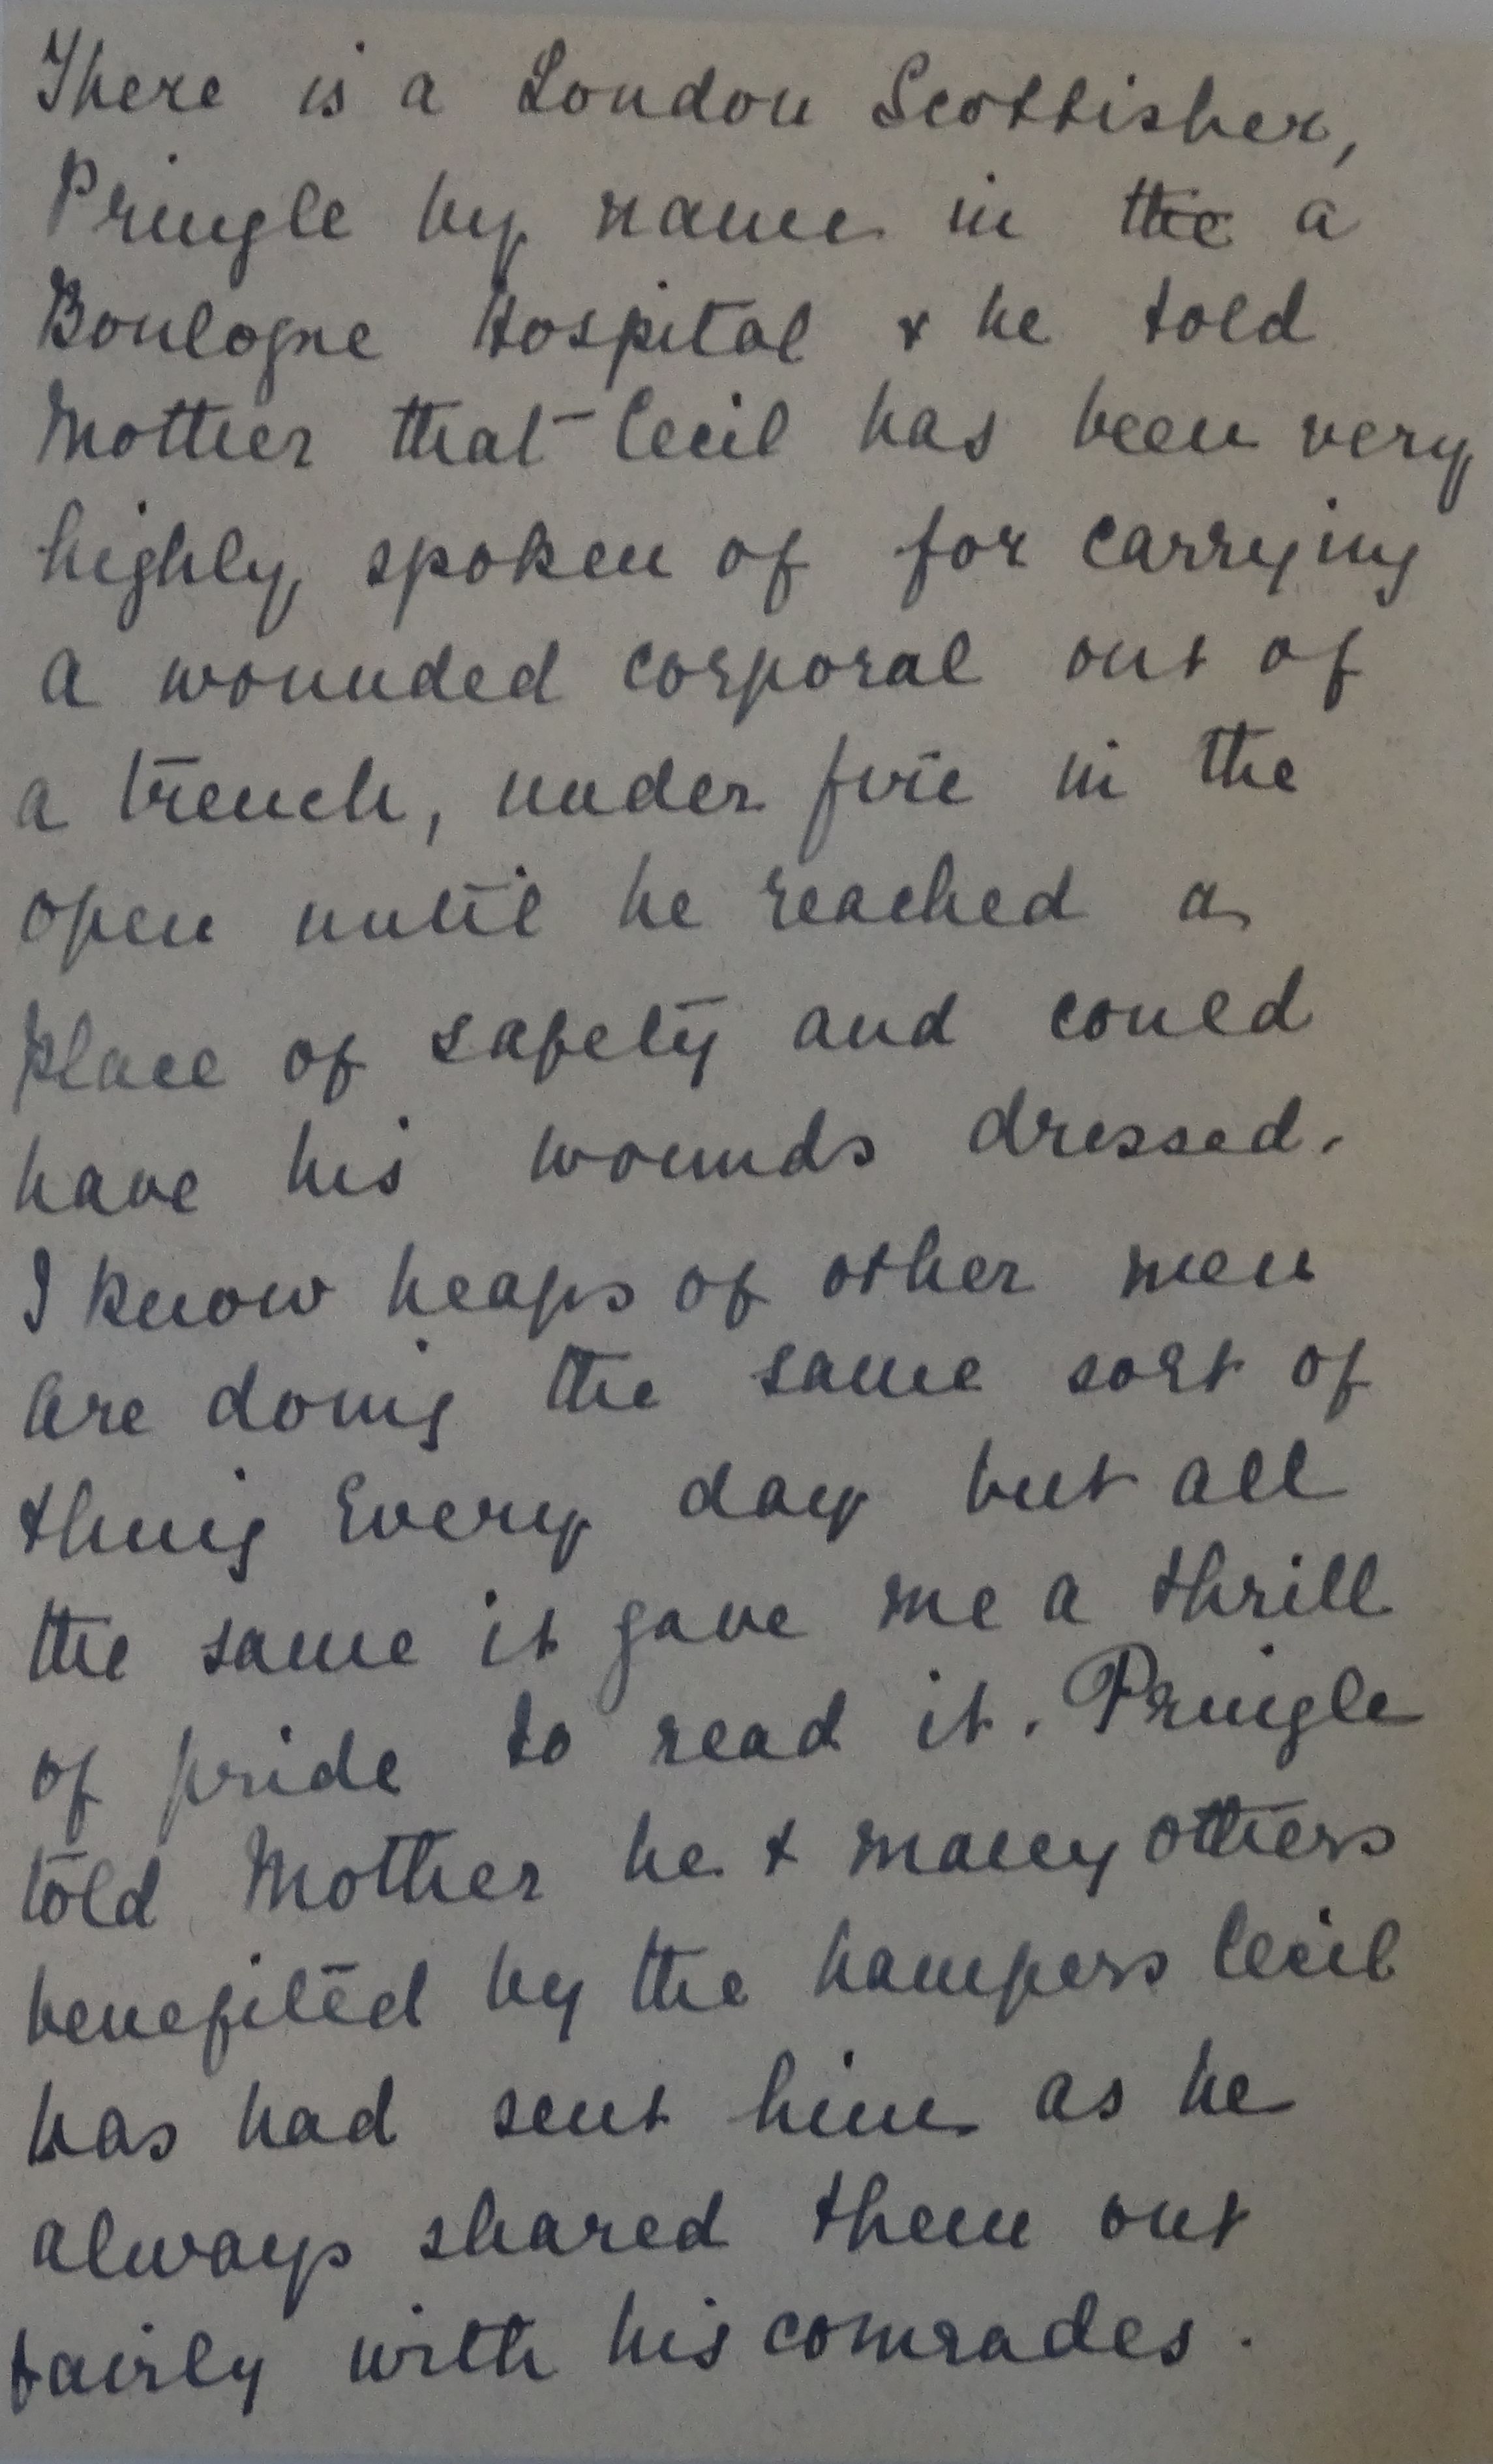 There is a London Scottisher,
Pringle by name in ~~the~~ a
Boulogne Hospital & he told
Mother that Cecil has been very
highly spoken of for carrying
a wounded corporal out of
a trench, under fire in the
open until he reached a
place of safety and could
have his wounds dressed.
I know heaps of other men
are doing the same sort of
thing Every day but all
the same it gave me a thrill
of pride to read it. Pringle
told Mother he & many others
benefited by the hampers Cecil
has had sent him as he
always shared them out
fairly with his comrades.